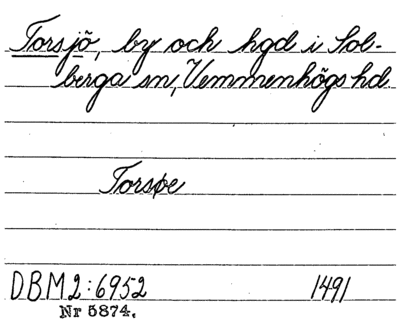 Torsjö, by och hgd i Sol-
berga sn, Vemmenhögs hd.
Torsøe
DBM 2:6952 1491
Nr 5874.